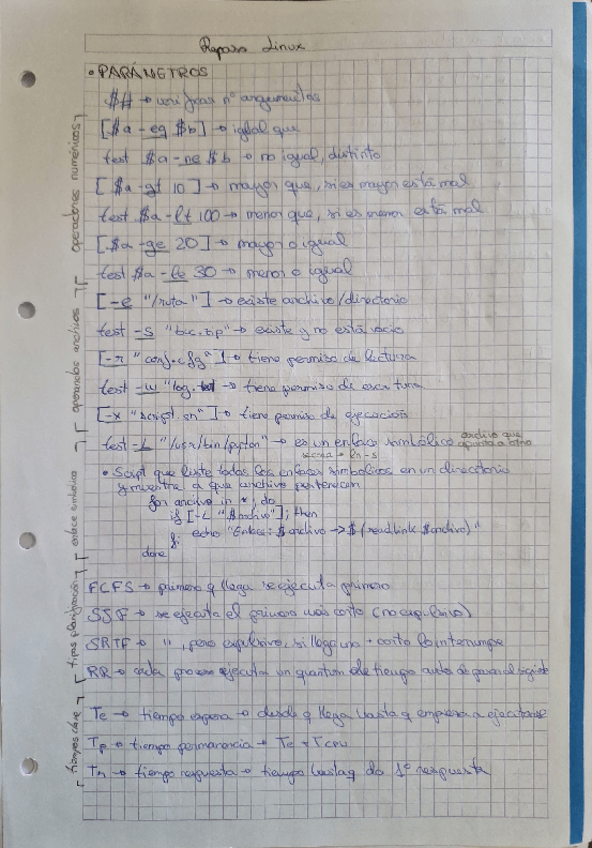 Repaso Linux
• PARÁMETROS
$# → verificar nº argumentos
[$a -eq $b] → igual que
test $a -ne $b → no igual, distinto
[$a -gt 10] → mayor que, si es mayor está mal
test $a -lt 100 → menor que, si es menor está mal
[$a -ge 20] → mayor o igual
test $a -le 30 → menor o igual
[-e "/ruta"] → existe archivo/directorio
test -s "buc.zip" → existe y no está vacío
[-r "conf.cfg"] → tiene permiso de lectura
test -w "log. → tiene permiso de escritura
[-x "script.sh"] → tiene permiso de ejecución
test -L "/usr/bin/pyton" → es un enlace simbólico archivo que apunta a otro
ln -s
• Script que liste todos los enlaces simbólicos en un directorio
y muestre a que archivo pertenecen
for archivo in *; do
if [-L "$archivo"]; then
echo "Enlace: $archivo → $(readlink $archivo)"
fi
done
FCFS → primero q llega se ejecuta primero
SJF → se ejecuta el primero más corto (no expulsivo)
SRTF → ", pero expulsivo, si llega uno + corto lo interrumpe
RR → cada proceso ejecuta un quantum de tiempo antes de pasar al siguiente
Te → tiempo espera → desde q llega hasta q empieza a ejecutarse
Tp → tiempo permanencia → Te + Tcpu
Tr → tiempo respuesta → tiempo hasta q da 1º respuesta
operadores numéricos
operandos archivos
enlace simbólico
tipos planificación
tiempos clave